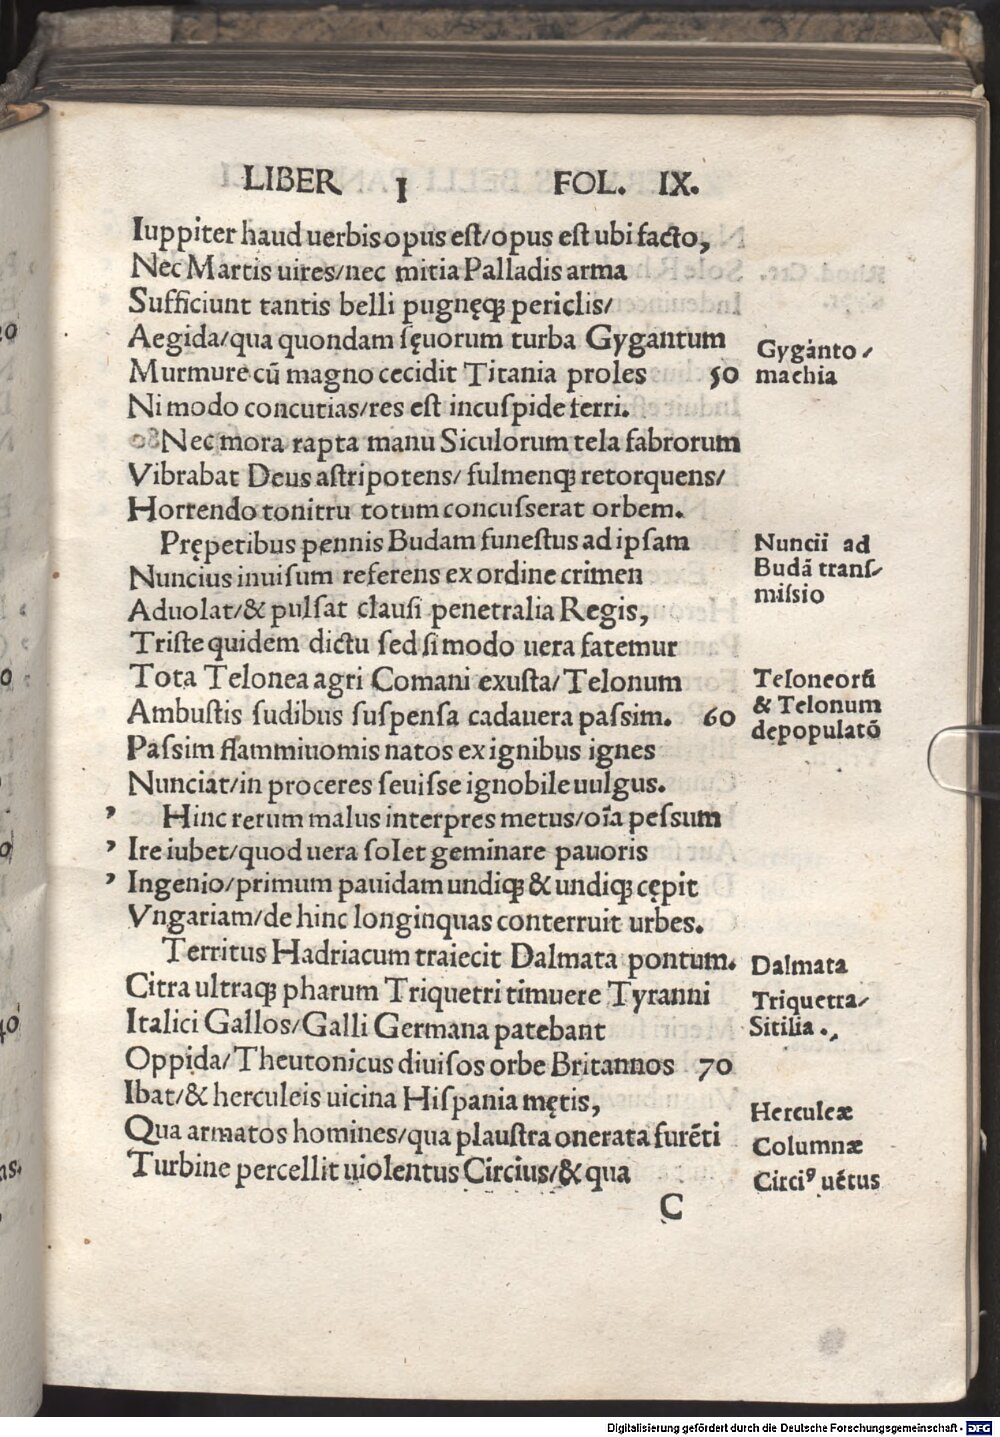 LIBER I FOL. IX.
Iuppiter haud uerbis opus eſt/opus eſt ubi facto,
Nec Martis uires/nec mitia Palladis arma
Sufficiunt tantis belli pugnęqꝫ periclis/
Aegida/qua quondam ſęuorum turba Gygantum
Gyganto/
Murmure cū magno cecidit Titania proles 50
machia
Ni modo concutias/res eſt in cuſpide ferri.
Nec mora rapta manu Siculorum tela fabrorum
Vibrabat Deus aſtripotens/fulmenqꝫ retorquens/
Horrendo tonitru totum concuſſerat orbem.
Prępetibus pennis Budam funeſtus ad ipſam
Nuncii ad
Nuncius inuiſum referens ex ordine crimen
Budā tranſ/
Aduolat/& pulſat clauſi penetralia Regis,
miſsio
Triſte quidem dictu ſed ſi modo uera fatemur
Tota Telonea agri Comani exuſta/Telonum
Teloneorū
Ambuſtis ſudibus ſuſpenſa cadauera paſsim. 60
& Telonum
depopulatō
Paſsim flammiuomis natos ex ignibus ignes
Nunciat/in proceres ſeuiſse ignobile uulgus.
’ Hinc rerum malus interpres metus/oīa peſsum
’ Ire iubet/quod uera ſolet geminare pauoris
’ Ingenio/primum pauidam undiqꝫ & undiqꝫ cępit
Vngariam/de hinc longinquas conterruit urbes.
Territus Hadriacum traiecit Dalmata pontum.
Dalmata
Citra ultraqꝫ pharum Triquetri timuere Tyranni
Triquetra/
Italici Gallos/Galli Germana patebant
Sitilia.,
Oppida/Theutonicus diuiſos orbe Britannos 70
Ibat/& herculeis uicina Hiſpania mętis,
Herculeæ
Qua armatos homines/qua plauſtra onerata furēti
Columnæ
Turbine percellit uiolentus Circius/& qua
Circiꝰ uētus
C
Digitalisierung gefördert durch die Deutsche Forschungsgemeinschaft - DFG